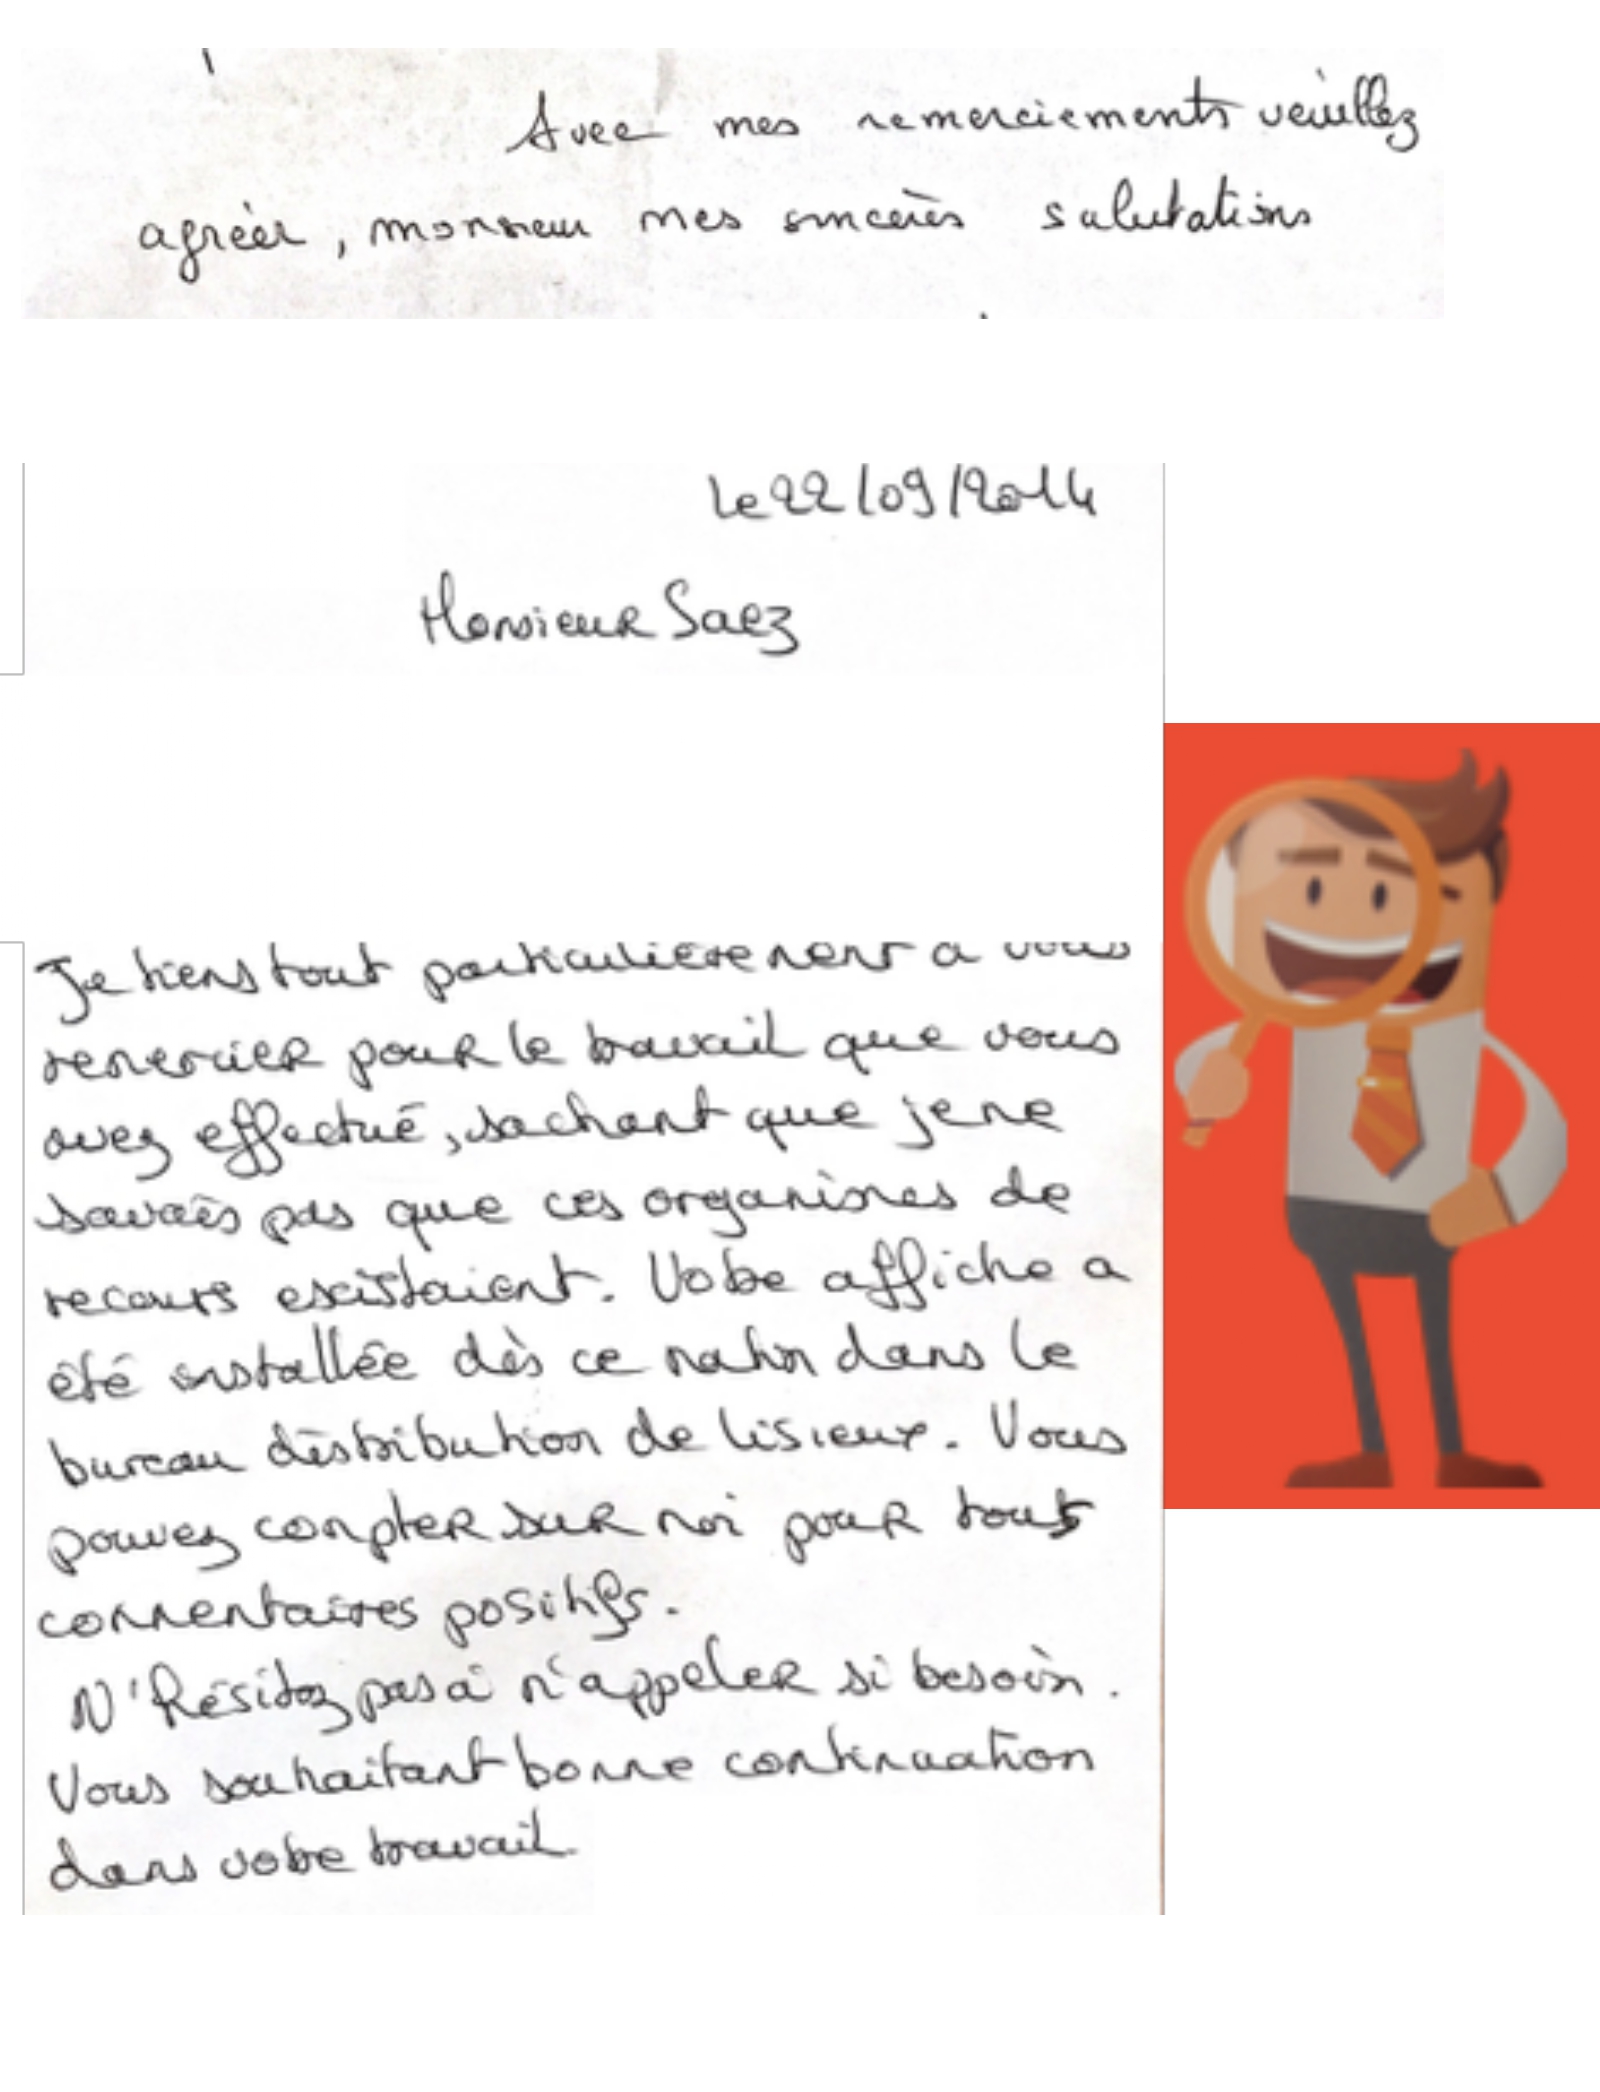 Avec mes remerciements veuillez
agréer, monsieur mes sincères salutations
Le 22/09/2014
Monsieur Saez
Je tiens tout particulièrement à vous
remercier pour le travail que vous
avez effectué, sachant que je ne
savais pas que ces organismes de
recours existaient. Votre affiche a
été installée dès ce matin dans le
bureau distribution de Lisieux. Vous
pouvez compter sur moi pour tous
commentaires positifs.
N'hésitez pas à m'appeler si besoin.
Vous souhaitant bonne continuation
dans votre travail.